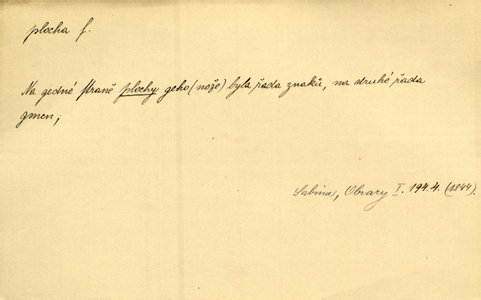 plocha f.
Na gedné straně plochy geho (nože) byla řada znaků, na druhé řada
gmen;
Sabina, Obrazy I. 194.4. (1844).